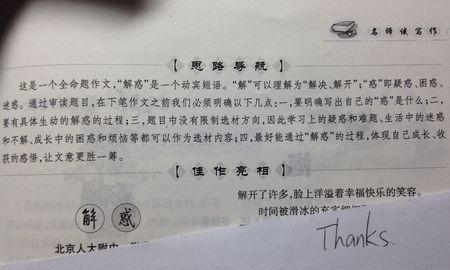 名师谈写作
【思路导航】
这是一个全命题作文，“解惑”是一个动宾短语。“解”可以理解为“解决、解开”；“惑”即疑惑、困惑、
迷惑。通过审读题目，在下笔作文之前我们必须明确以下几点：一，要明确写出自己的“惑”是什么；二，
要有具体生动的解惑的过程；三，题目中没有限制选材方向，因此学习上的疑惑和难题、生活中的迷惑
和不解、成长中的困惑和烦恼等都可以作为选材内容；四，最好能通过“解惑”的过程，体现自己成长、收
获的感悟，让文意更胜一筹。
【佳作亮相】
解惑
北京人大附中
解开了许多，脸上洋溢着幸福快乐的笑容。
时间被滑冰的充实
Thanks.